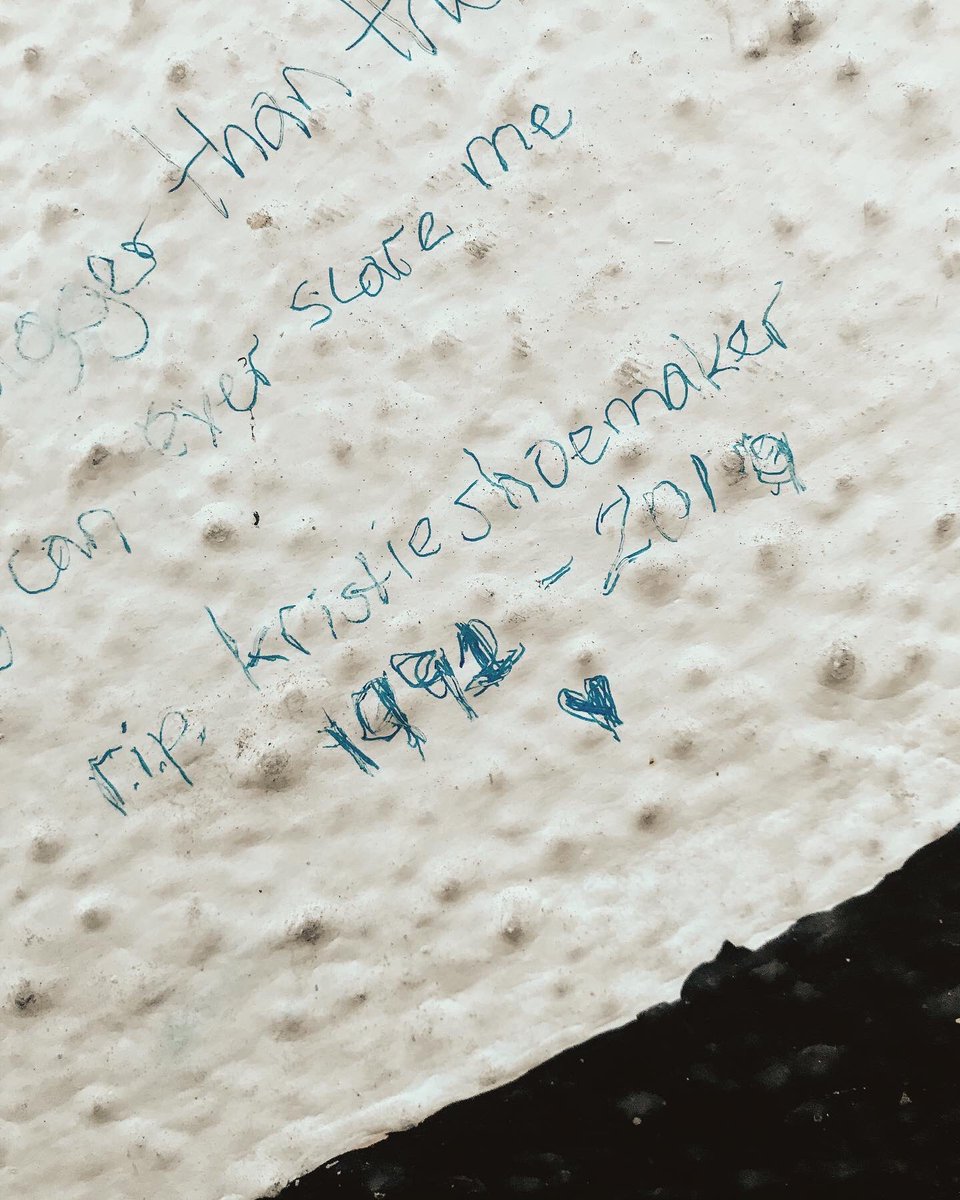 than
can ever scare me
r.i.p. kristieshoemaker
1992 - 2019